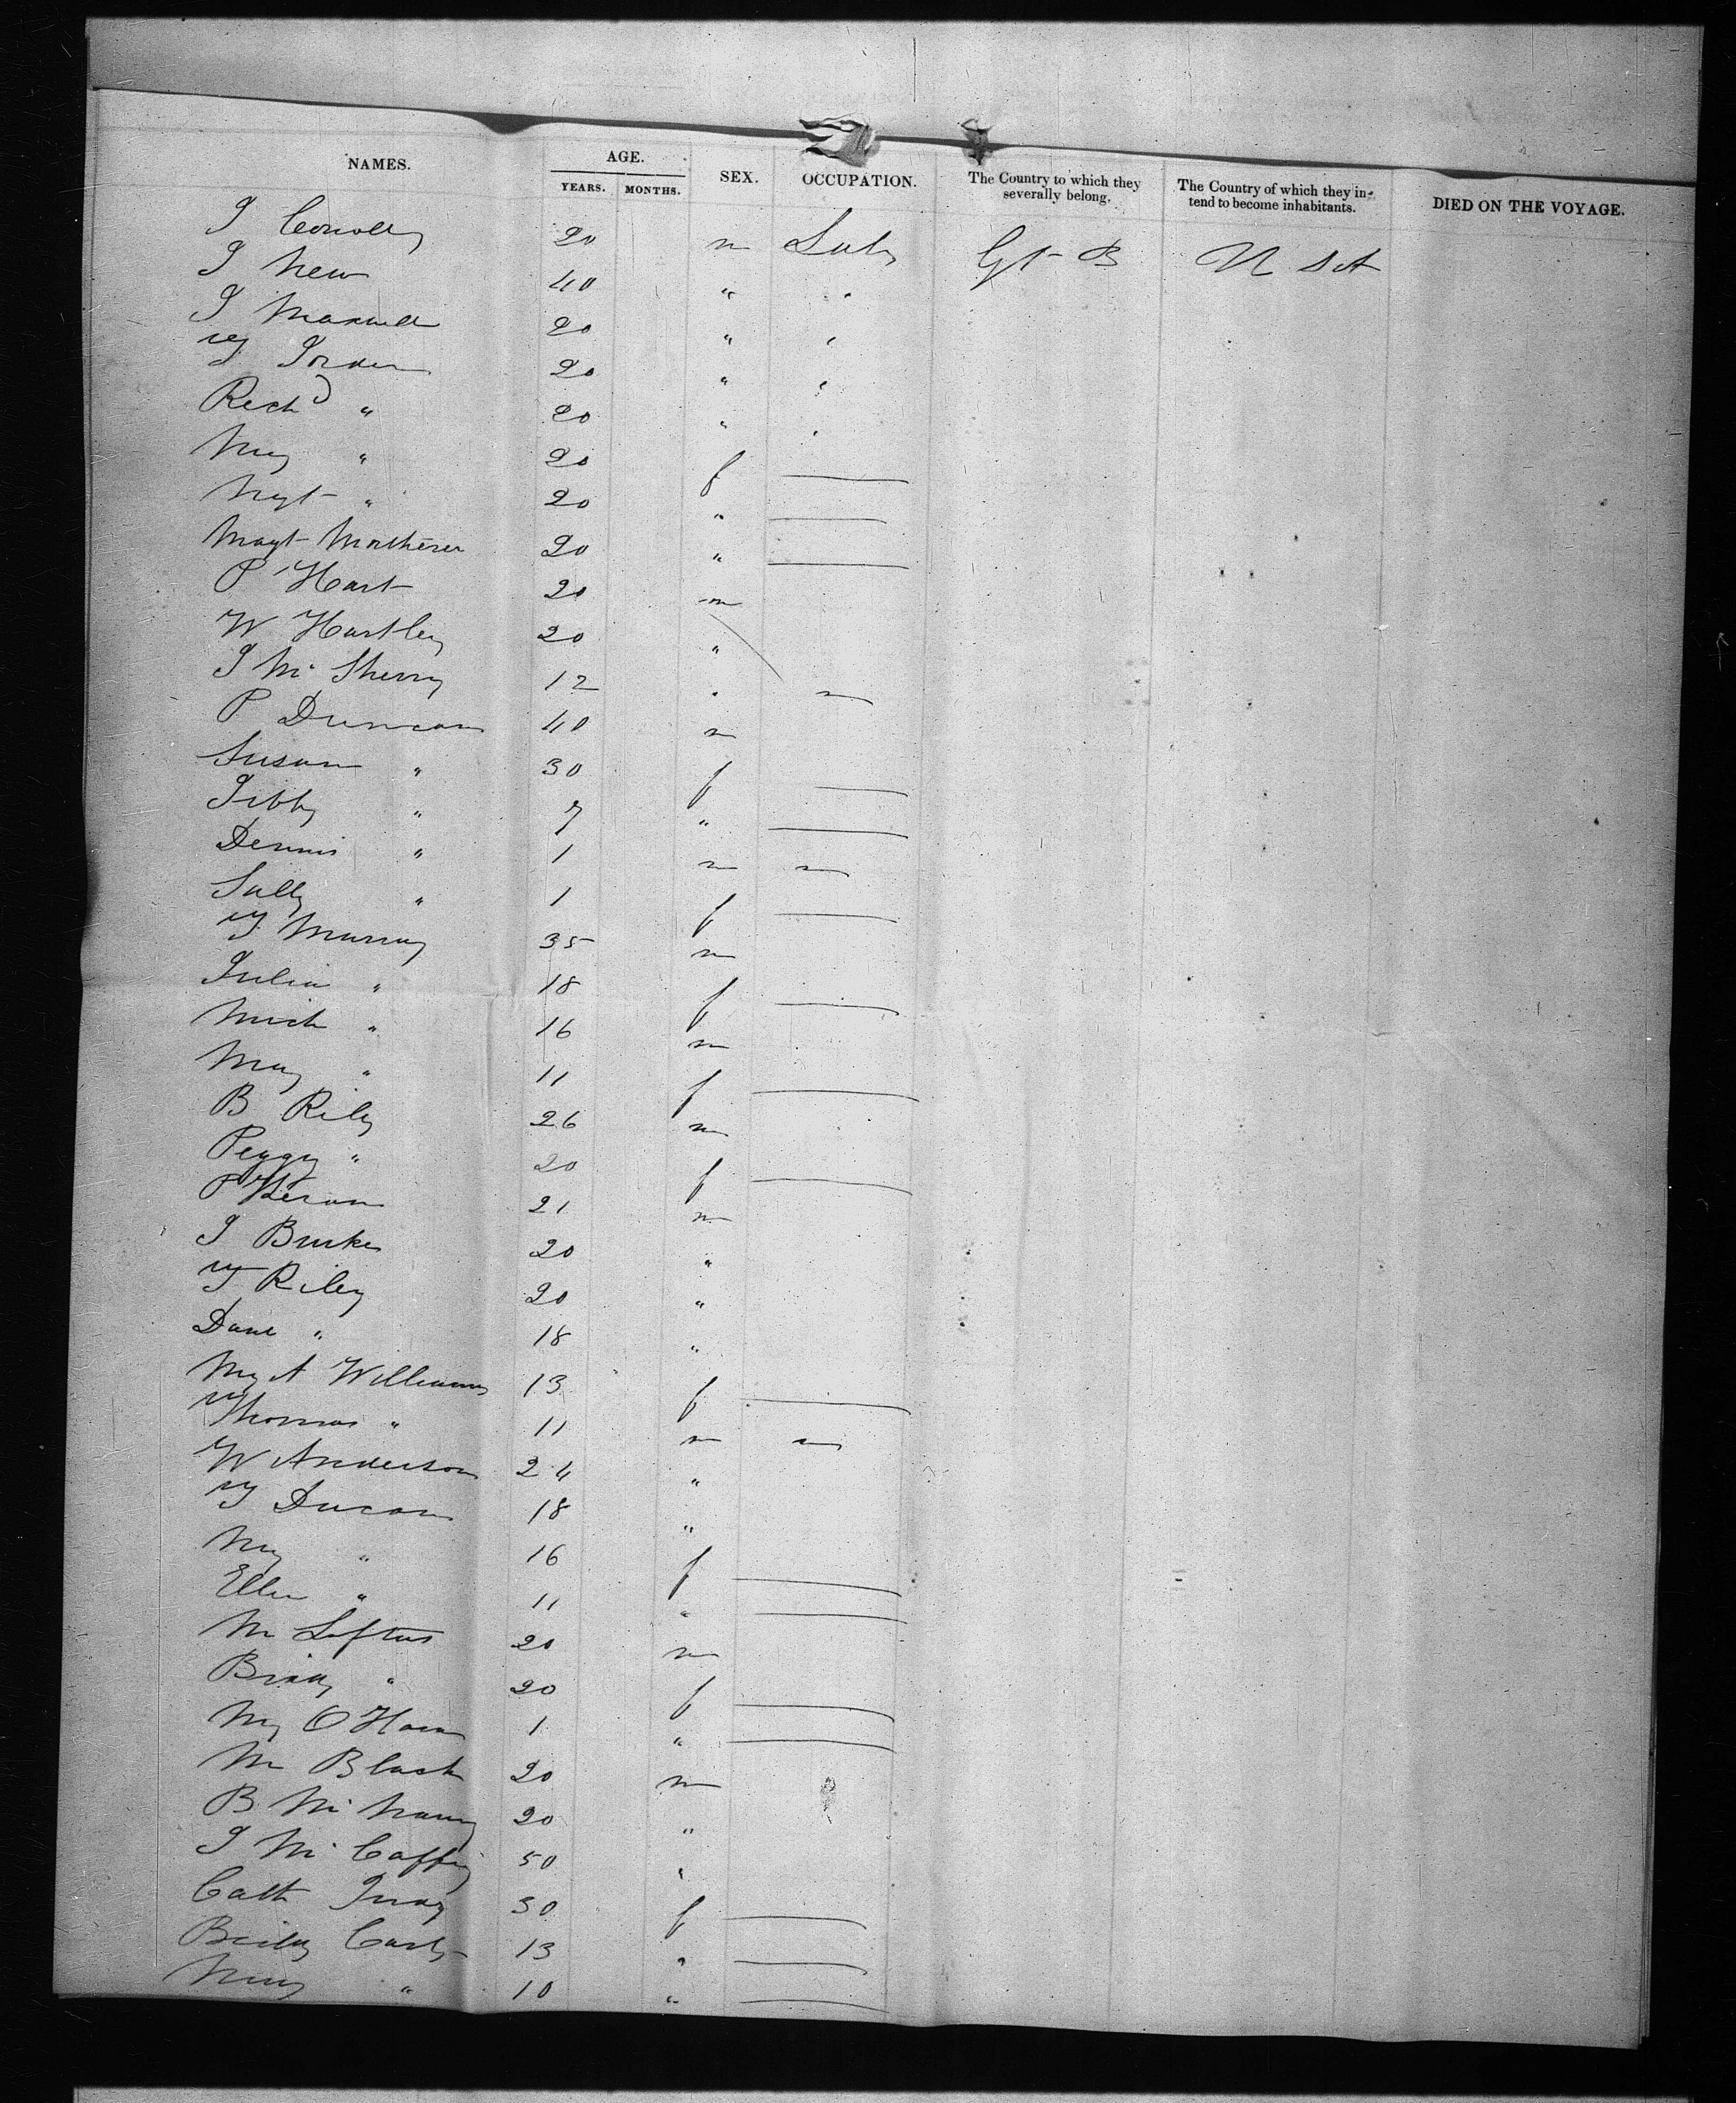 NAMES. AGE. YEARS. MONTHS. SEX. OCCUPATION. The Country to which they severally belong. The Country of which they intend to become inhabitants. DIED ON THE VOYAGE.
J Conolly 20 m Lab Gt B U S A
J New 40 " "
J Maxwell 20 " "
20 " "
Rich " 20 " "
My " 20 f —
Mgt " 20 " —
Magt 20 " —
P Hart 20 m
W Hartley 20 "
J Mc Sherry 12 "
P Duncan 40 m
Susan " 30 f —
Tibby " 7 " —
Dennis " 1 m —
Sally " 1 f —
T Murray 35 m
Julia " 18 f —
Mich " 16 m
May " 11 f —
B Rily 26 m
Peggy " 20 f —
P Keran 21 m
J Burke 20 "
T Riley 20 "
Danl " 18 "
My A Williams 13 f —
Thomas " 11 m —
W Anderson 24 "
T Ducan 18 "
My " 16 f —
Ellen " 11 " —
M Loftus 20 m
Biddy " 20 f —
My O Hara 1 " —
M Black 20 m
B Mc 20 "
J Mc 50 "
Cath 30 f —
13 " —
" 10 " —